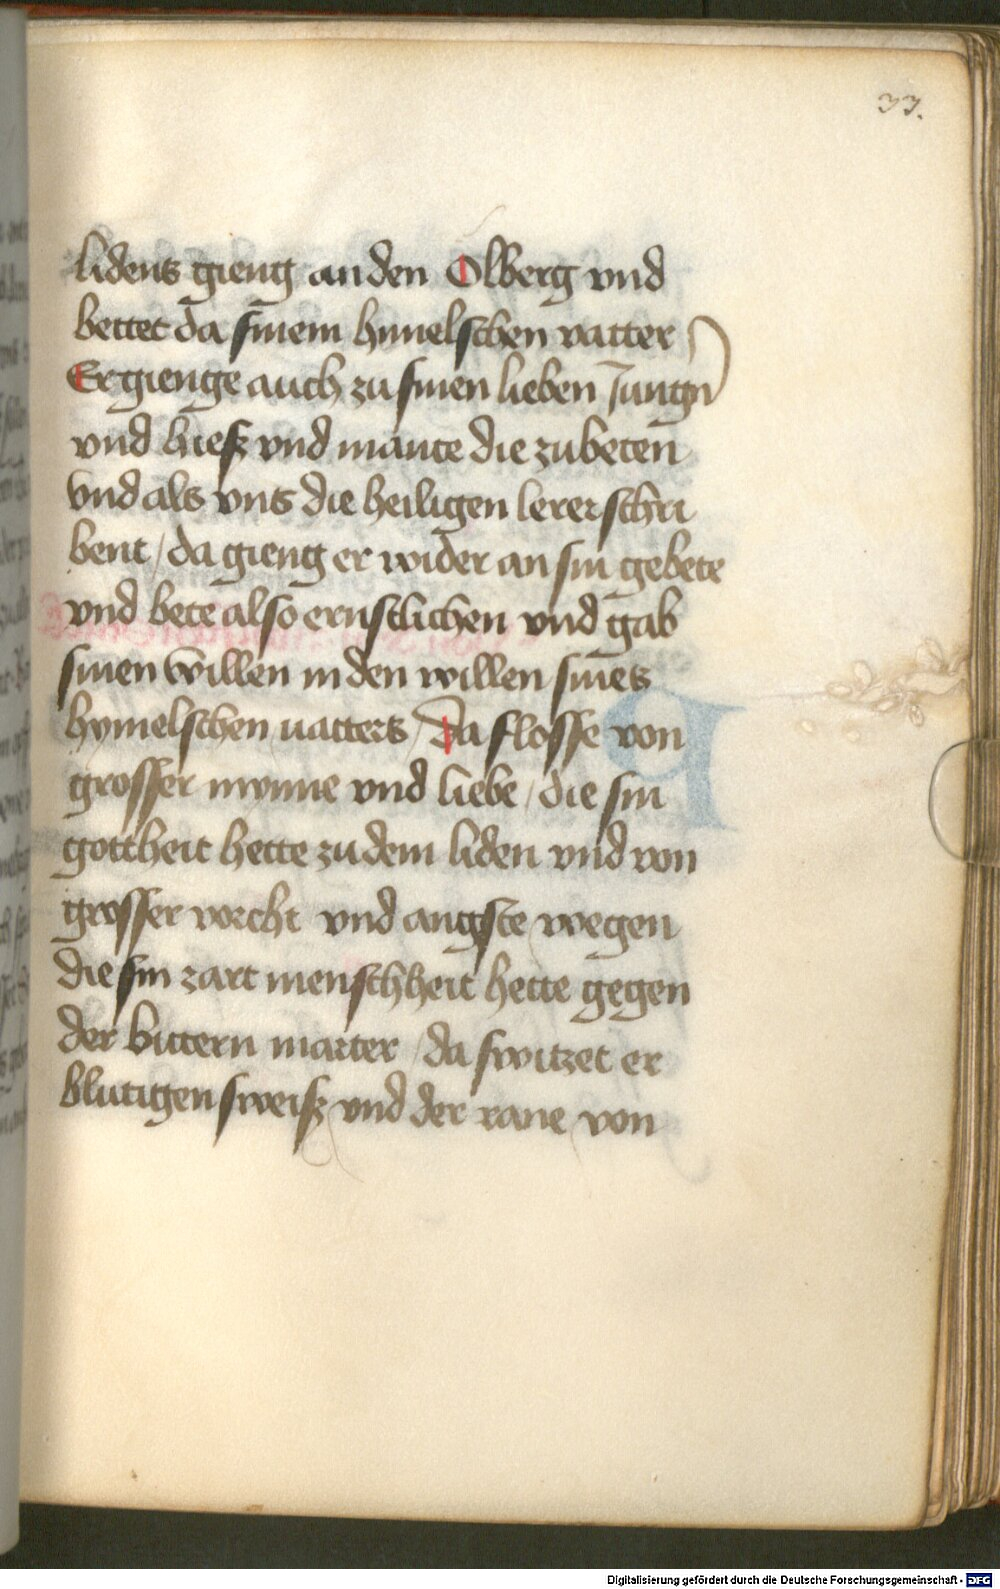 33.
lidens gieng an den Olberg vnd
bettet da sinem himelschen vatter
Er gienge auch zu sinen lieben Jungn
vnd hiesz vnd mante die zubeten
vnd als vns die heiligen lerer schri
bent / da gieng er wider an sin gebete
vnd bete also ernstlichen vnd gab
sinen willen in den willen sines
hymelschen uatters / Da flosse von
grosser mynne vnd liebe / die sin
gottheit hette zu dem liden vnd von
grosser vorcht vnd angste wegen
die sin zart menschheit hette gegen
der bittern marter / da switzet er
blutigen sweisz vnd der rane von
Digitalisierung gefördert durch die Deutsche Forschungsgemeinschaft - DFG